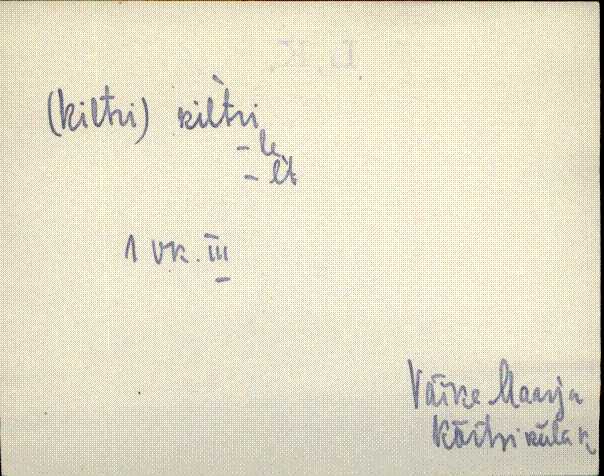 (kiltri) kilt̀ri
- le
- lt
1 vk. III
Väike Maarja
Kõltri küla k